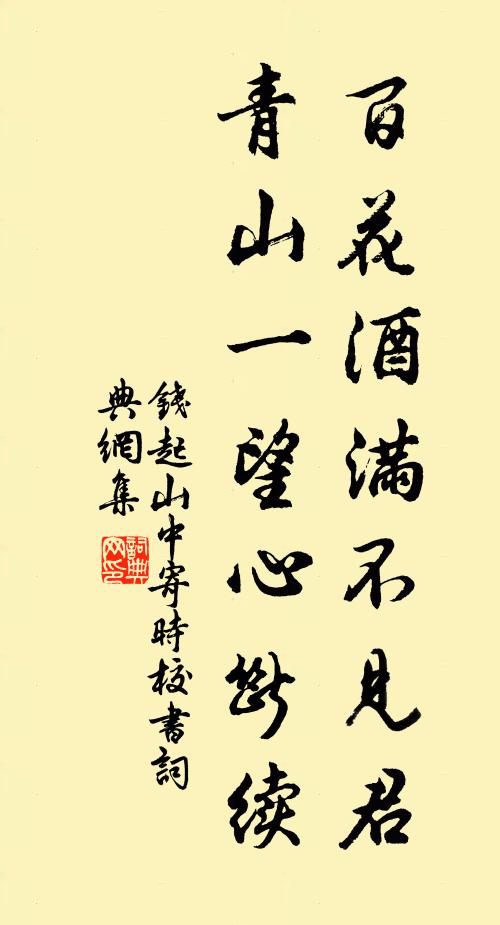 百花酒满不見君
青山一望心斷续
錢起山中寄時校書詞
典網集
詞典
网印